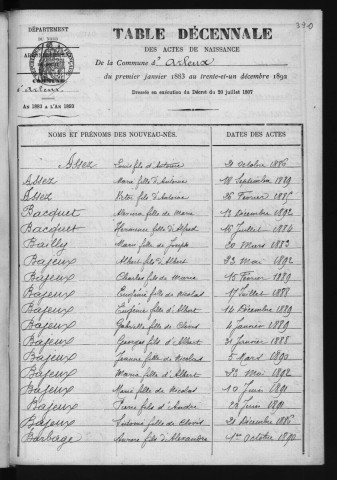 390
DÉPARTEMENT
DU NORD
TABLE DÉCENNALE
DES ACTES DE NAISSANCE
De la Commune d'Arleux
du premier janvier 1883 au trente-et-un décembre 1892
Dressée en exécution du Décret du 20 juillet 1807
d'Arleux
AN 1883 A L'AN 1893
NOMS ET PRÉNOMS DES NOUVEAU-NÉS. DATES DES ACTES
Assez Louis fils d'Antoine 21 Octobre 1886
Assez Marie fille d'Antoine 18 Septembre 1889
Assez fils d'Antoine 26 Février 1885
Bacquet fille de Marie 13 Décembre 1892
Bacquet Hermance fille d'Alfred 16 Juillet 1884
Bailly Marie fille de Joseph 20 Mars 1883
Bajeux Albert fils d'Albert 23 Mai 1892
Bajeux Charles fils de Maria 15 Février 1889
Bajeux Eugénie fille de Nicolas 17 Juillet 1888
Bajeux Eugénie fille d'Albert 14 Décembre 1889
Bajeux Gabrielle fille de Clovis 4 Janvier 1889
Bajeux Georges fils d'Albert 31 Janvier 1888
Bajeux Jeanne fille de Nicolas 5 Mars 1890
Bajeux Maria fille d'Albert 22 Mai 1892
Bajeux Marie fille de Nicolas 10 Juin 1891
Bajeux Pierre fils d'André 22 Juin 1891
Bajeux Ludovic fils de Clovis 21 Décembre 1886
Barbage Aurore fille d'Alexandre 1er Octobre 1890